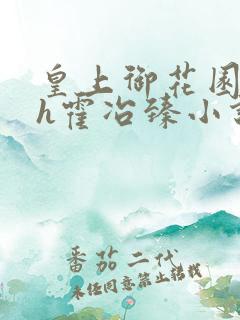 皇上御花园
h霍冶臻小
番茄二代
未经同意禁止转载